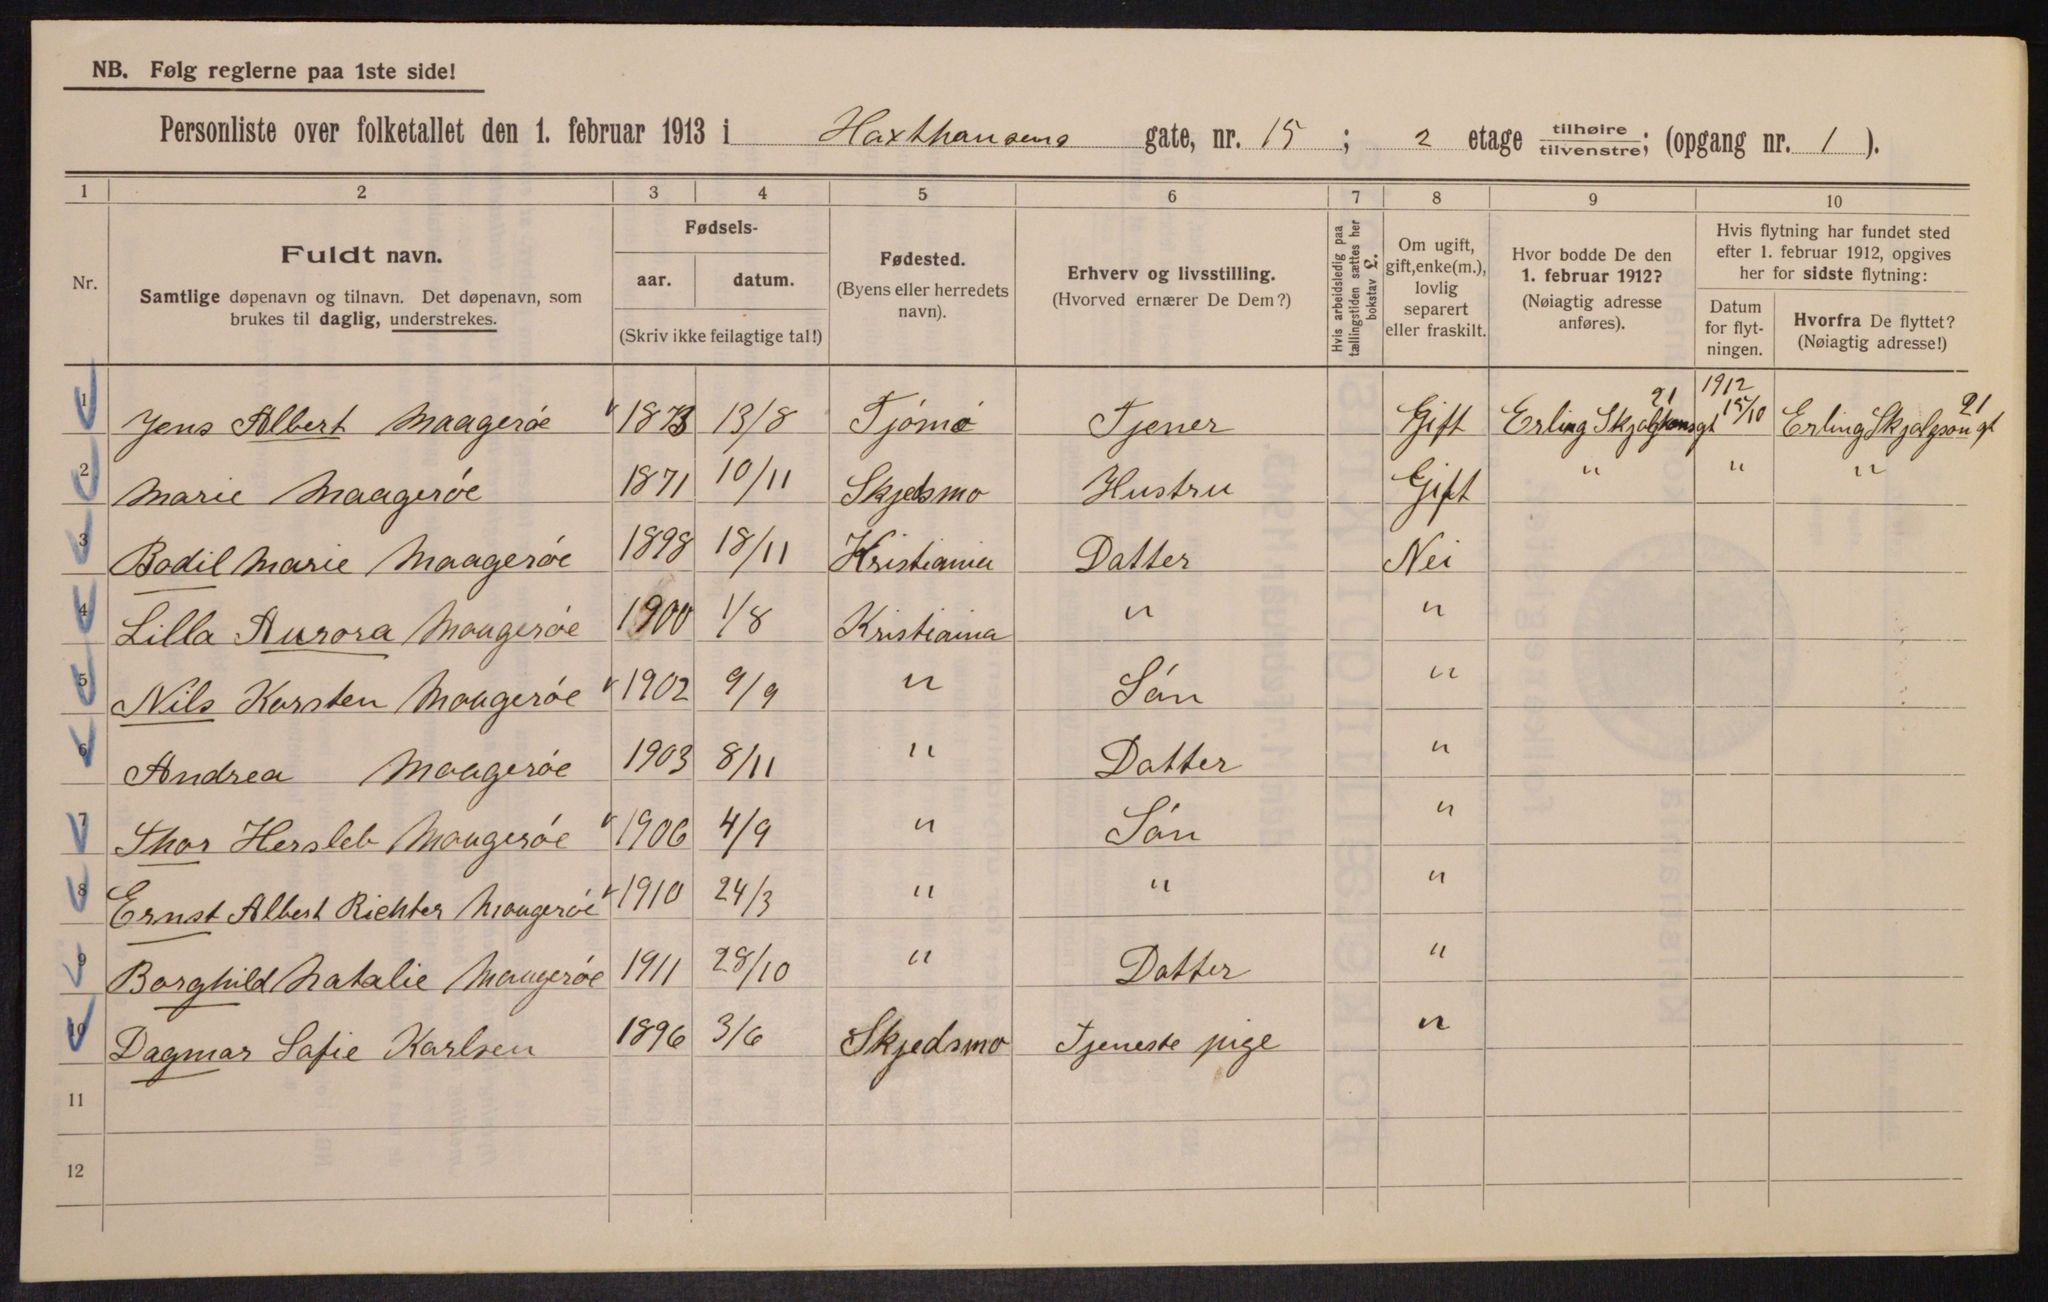 NB. Følg reglerne paa 1ste side!
Personliste over folketallet den 1. februar 1913 i Haxthausens gate, nr. 15; 2 etage tilhøire/tilvenstre; (opgang nr. 1).
1 2 3 4 5 6 7 8 9 10
Nr.
Fuldt navn.
Samtlige døpenavn og tilnavn. Det døpenavn, som brukes til daglig, understrekes.
Fødsels-
aar. datum.
(Skriv ikke feilagtige tal!)
Fødested.
(Byens eller herredets navn).
Erhverv og livsstilling.
(Hvorved ernærer De Dem?)
Hvis arbeidsledig paa tællingstiden sættes her bokstav L.
Om ugift, gift, enke(m.), lovlig separert eller fraskilt.
Hvor bodde De den 1. februar 1912?
(Nøiagtig adresse anføres).
Hvis flytning har fundet sted efter 1. februar 1912, opgives her for sidste flytning:
Datum for flytningen.
Hvorfra De flyttet?
(Nøiagtig adresse!)
1 Jens Albert Maagerøe 1873 13/8 Tjømø Tjener Gift Erling Skjalgsonsgt 21 1912 15/10 Erling Skjalgson gt 21
2 Marie Maagerøe 1871 10/11 Skjedsmo Hustru Gift " " "
3 Bodil Marie Maagerøe 1898 18/11 Kristiania Datter Nei
4 Lilla Aurora Maagerøe 1900 1/8 Kristiania " "
5 Nils Karsten Maagerøe 1902 9/9 " Søn "
6 Andrea Maagerøe 1903 8/11 " Datter "
7 Thor Hersleb Maagerøe 1906 4/9 " Søn "
8 Ernst Albert Richter Maagerøe 1910 24/3 " " "
9 Borghild Natalie Maagerøe 1911 28/10 " Datter "
10 Dagmar Sofie Karlsen 1896 3/6 Skjedsmo Tjeneste pige "
11
12